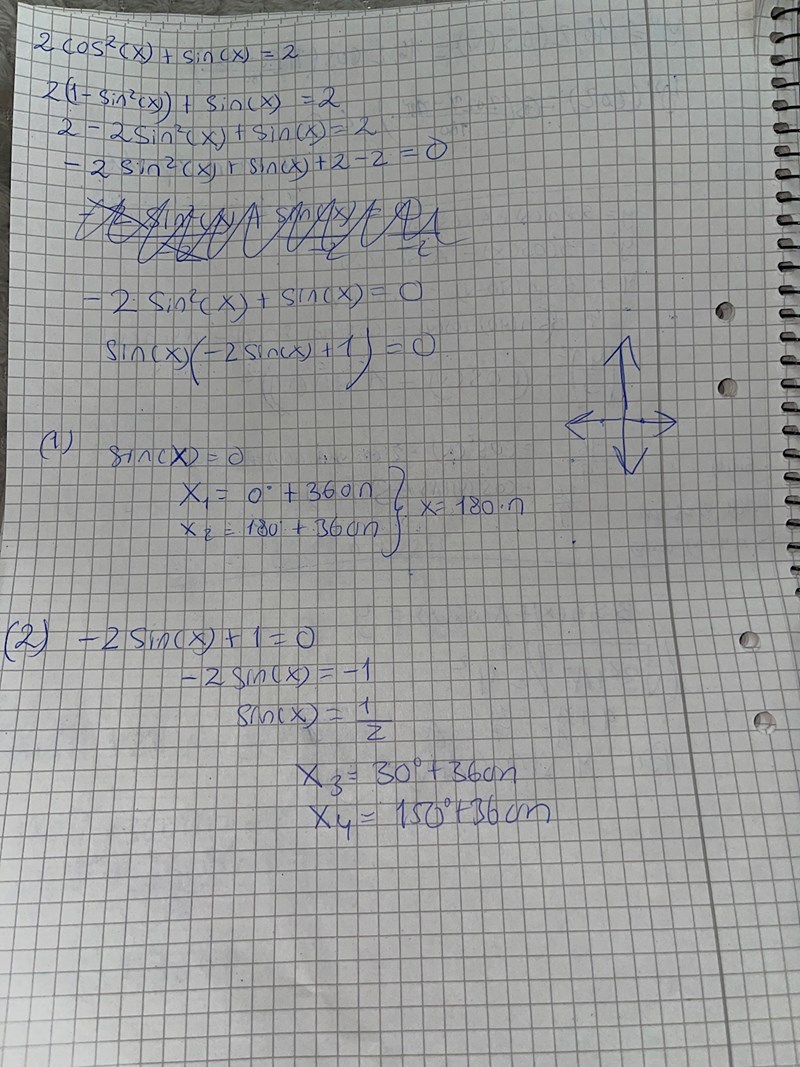 2cos²(x) + sin(x) = 2
2(1-sin²(x)) + sin(x) = 2
2 - 2sin²(x) + sin(x) = 2
-2 sin²(x) + sin(x) + 2 - 2 = 0
-2 sin²(x) + sin(x) = 0
sin(x)(-2sin(x) + 1) = 0
(1) sin(x) = 0
x₁ = 0° + 360n
x₂ = 180 + 360n } x = 180·n
(2) -2sin(x) + 1 = 0
-2sin(x) = -1
sin(x) = 1/2
x₃ = 30° + 360n
x₄ = 150° + 360n